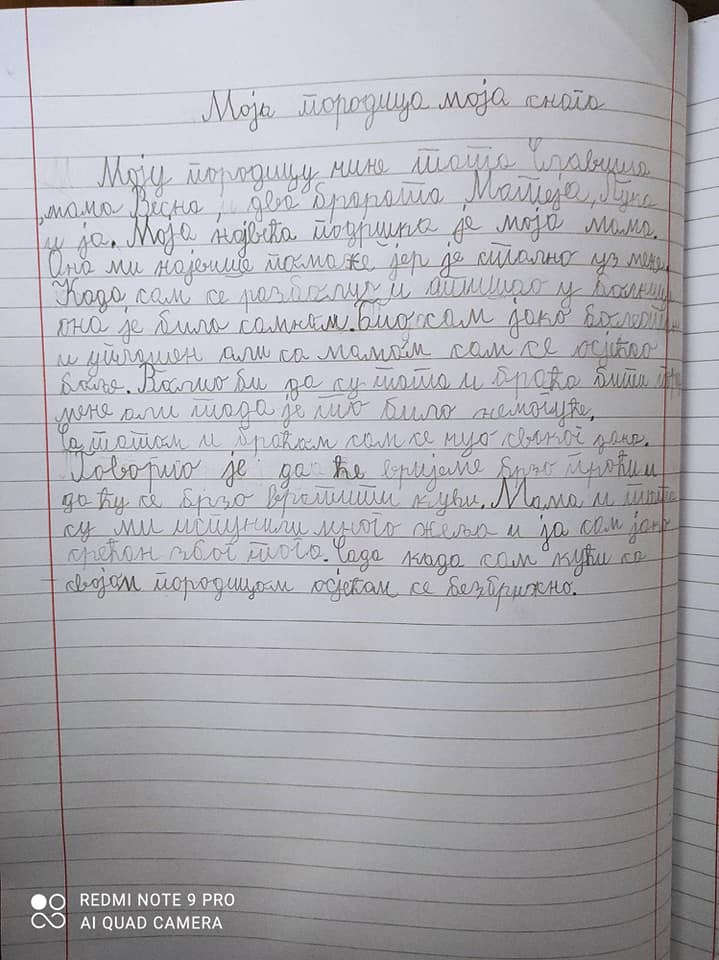 Моја породица моја снага
Моју породицу чине тата Славиша
, мама Весна, два брарата Матеја, Лука
и ја. Моја највећа подршка је моја мама.
Она ми највише помаже јер је стално уз мене.
Када сам се разболио и отишао у болницу
она је била самном. Био сам јако болестан
и уплашен али са мамом сам се осјећао
боље. Волио би да су тата и браћа били поред
мене али тада је то било немогуће.
Са татом и браћом сам се чуо сваког дана.
Говорио је да ће вријеме брзо проћи и
да ћу се брзо вратити кући. Мама и тата
су ми испунили много жеља и ја сам јако
срећан због тога. Сада када сам кући са
својом породицом осјећам се безбрижно.
REDMI NOTE 9 PRO
AI QUAD CAMERA